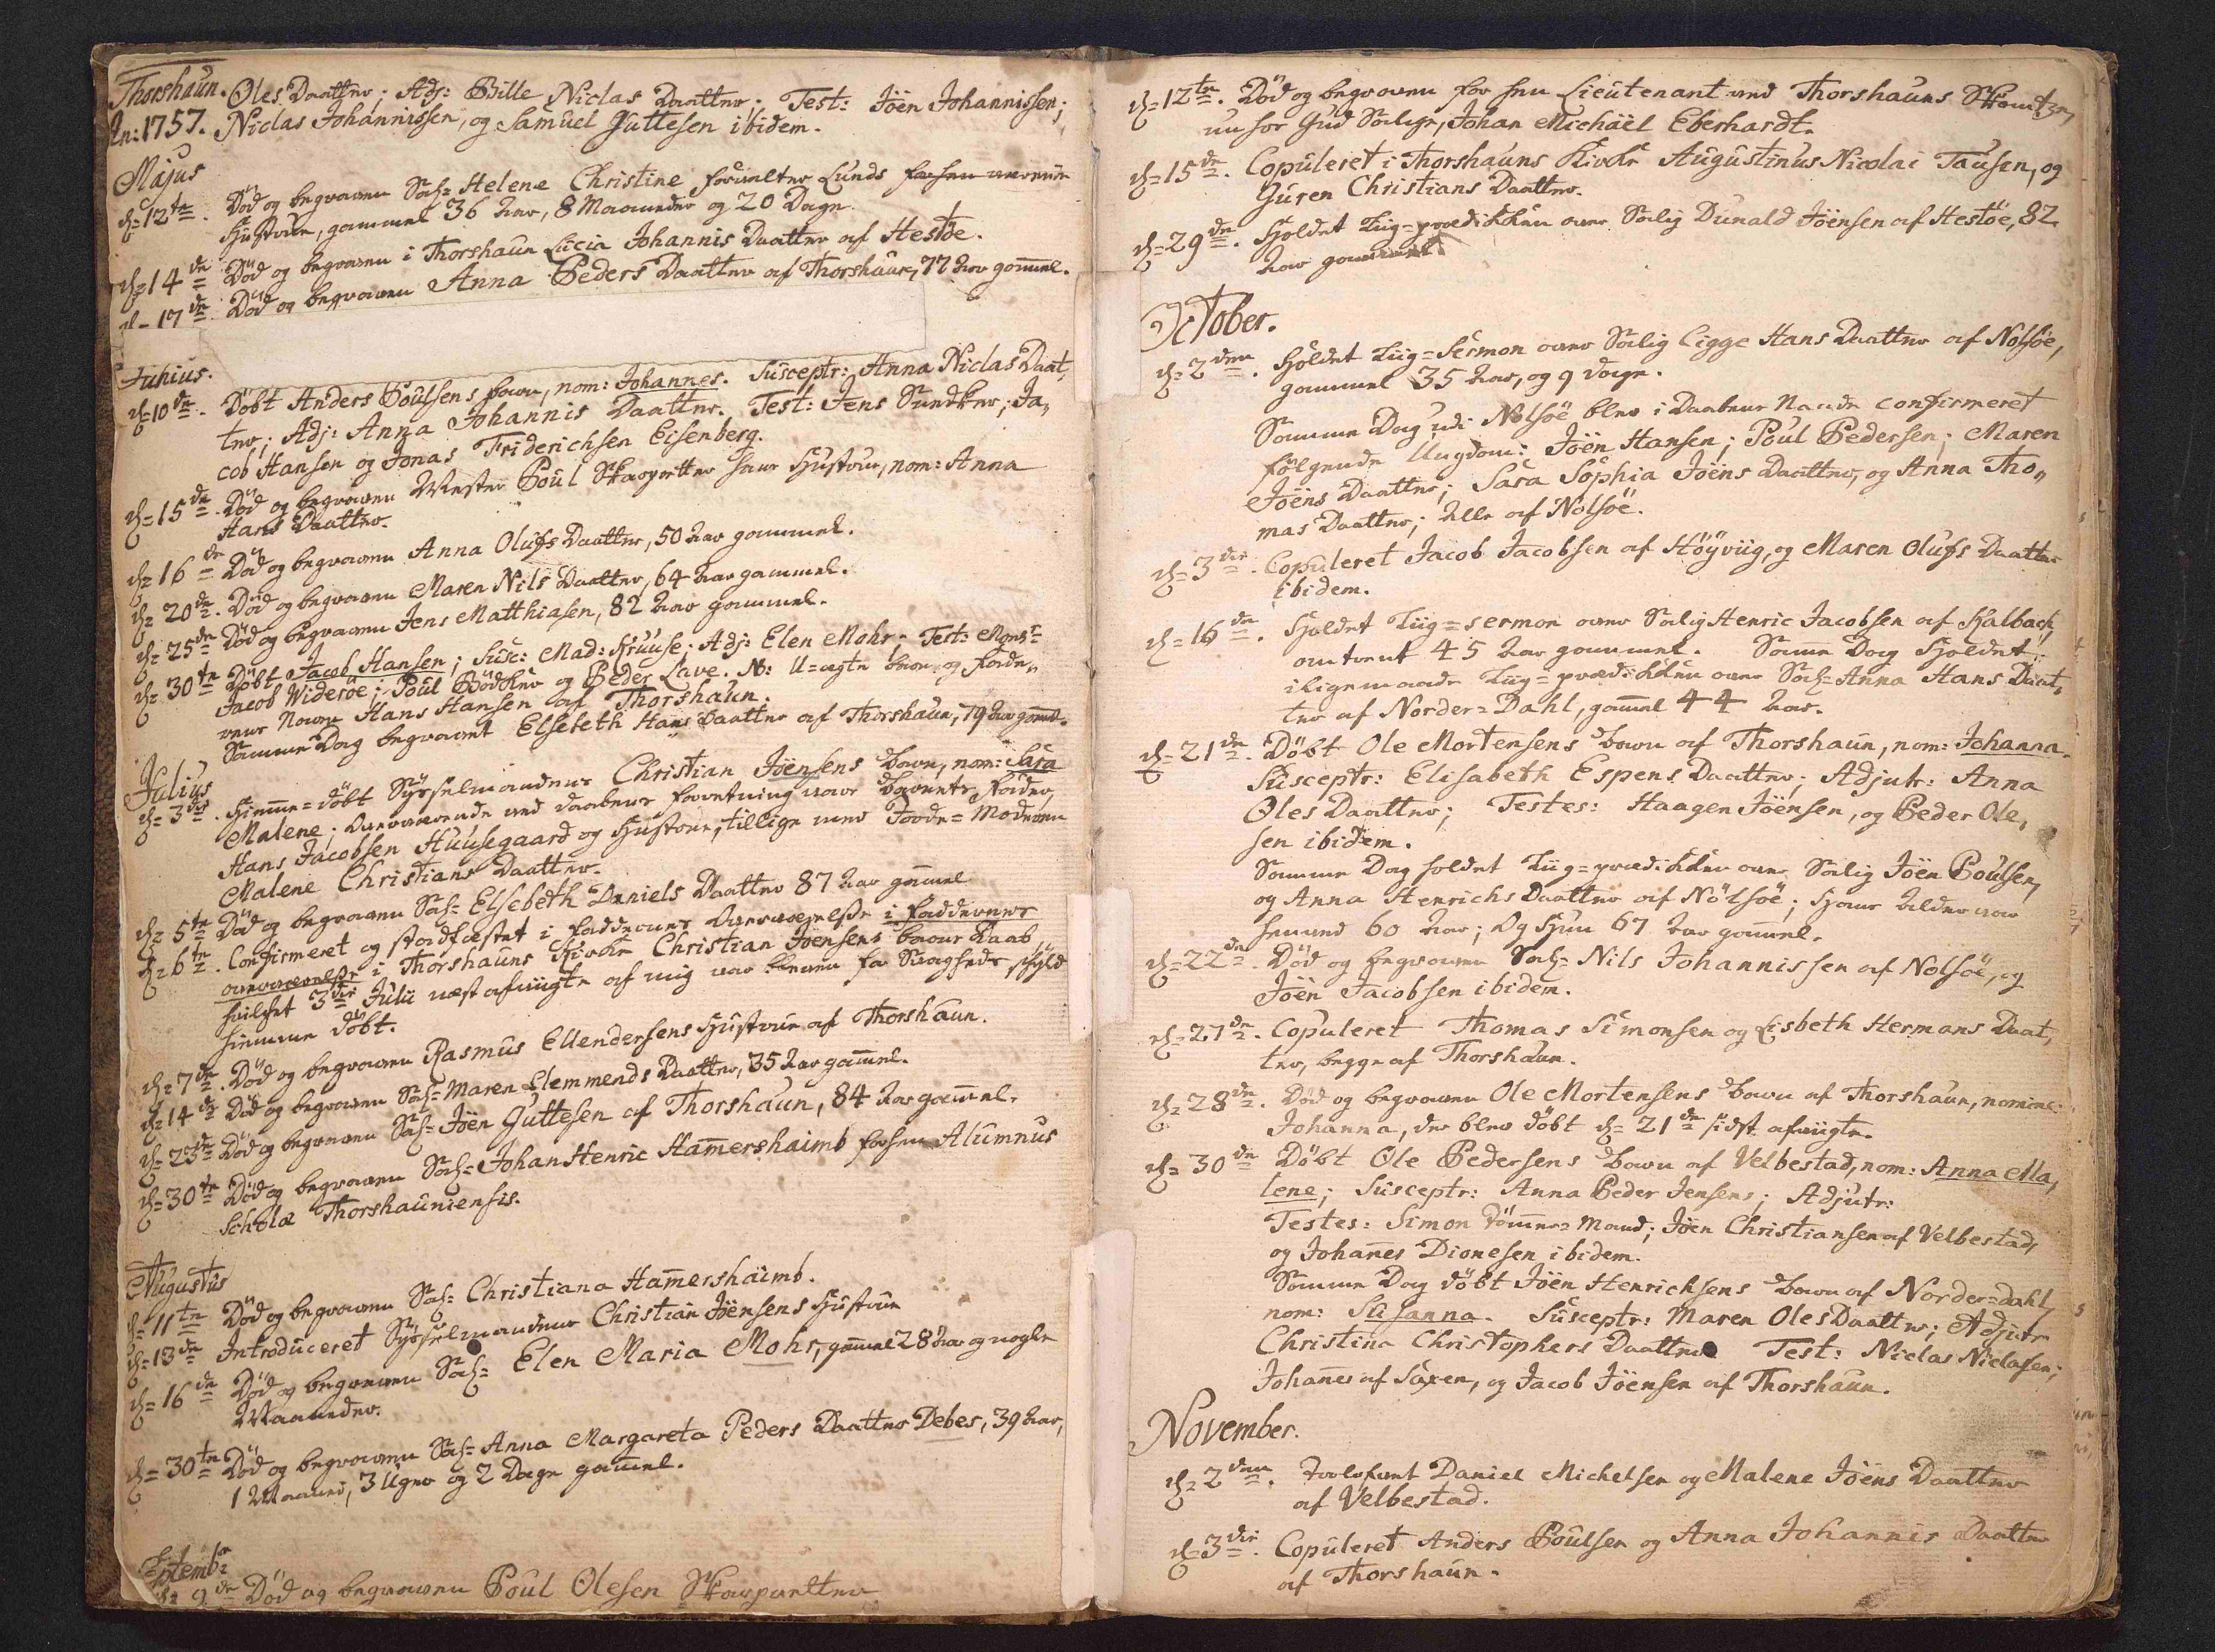 Thorshaun. Oles Daatter; Adj: Bille Niclas Daatter; Test: Jöen Johannissen;
An: 1757. Niclas Johannissen, og Samuel Guttesen ibidem.
Majus
d. 12te. Död og begraven Sal: Helene Christine forvalter Lunds
Hustrue, gammel 36 Aar, 8 Maaneder og 20 Dage.
d. 14de Död og begraven i Thorshaun Lucia Johannis Daatter af Hestöe.
d. 17de. Död og begraven Anna Peders Daatter af Thorshaun, 77 Aar gam̄el.
Junius.
d. 10de. Döbt Anders Poulsens barn, nom: Johannes. Susceptr: Anna Niclas Daat,
ter; Adj: Anna Johannis Daatter. Test: Jens Snedker; Ja,
cob Hansen og Jonas Friderichsen Eisenberg.
d. 15de. Död og begraven Mester Poul Skarpretter hans Hustrue, nom: Anna
Hans Daatter.
d. 16de Död og begraven Anna Olufs Daatter, 50 Aar gammel.
d. 20de. Död og begraven Maren Nils Daatter, 64 Aar gammel.
d. 25de Död og begraven Jens Matthiasen, 82 Aar gammel.
d. 30te Döbt Jacob Hansen; Susc: Mad: Kruuse; Adj: Elen Mohr. Test: Monsr
Jacob Wideröe; Poul Bödker og Peder Lave. N: U-ægte barn og fade,
rens Navn Hans Hansen af Thorshaun.
Samme Dag begravet Elsebeth Hans Daatter af Thorshaun, 79 Aar gam̄el.
Julius
d. 3die. Hiem̄e-döbt Sysselmandens Christian Jöensens barn, nom: Sara
Malene; Nærværende ved daabens forretning var barnets fader,
Hans Jacobsen Huusegaard og Hustrue, tillige med Jorde-Moderen
Malene Christians Daatter.
d. 5te Död og begraven Sal: Elsebeth Daniels Daatter 87 Aar gam̄el
d. 6te. Confirmeret og stadfæstet i faddernes Nærværelse i faddernes
nærværelse i Thorshauns Kirke Christian Jöensens barns Daab
hvilket 3die Julii næst afvigte af mig var bleven for Svagheds skyld
hiemme döbt.
d. 7de. Död og begraven Rasmus Ellendersens Hustrue af Thorshaun.
d. 14de Död og begraven Sal: Maren Clemmends Daatter, 35 Aar gam̄el.
d. 23de Död og begraven Sal: Jöen Guttesen af Thorshaun, 84 Aar gam̄el.
d. 30te Död og begraven Sal: Johan Henric Ham̄ershaimb forhen Alumnus
Scholæ Thorshauniensis.
Augustus
d. 11te Död og begraven Sal: Christiana Ham̄ershaimb.
d. 13de Introduceret Sysselmandens Christian Jöensens Hustrue
d. 16de Död og begraven Sal: Elen Maria Mohr, gam̄el 28 Aar og nogle
Maaneder.
d. 30te Död og begraven Sal: Anna Margareta Peders Daatter Debes, 39 Aar,
1 Maaned, 3 Uger og 2 Dage gam̄el.
Septembr
d. 9de Död og begraven Poul Olesen Skarpretter
d. 12te. Död og begraven for hen Lieutenant ved Thorshauns Skantze,
nu hos Gud Salige, Johan Michaël Eberhardt.
d. 15de. Copuleret i Thorshauns Kirke Augustinus Nicolai Tausen, og
Guren Christians Daatter.
d. 29de. Holdet Liig-prædikken over Salig Dunald Jöensen af Hestöe, 82
Aar gammel.
October.
d. 2den. Holdet Liig-Sermon over Salig Ligge Hans Daatter af Nolsöe,
gammel 35 Aar, og 9 dage.
Samme Dag udi Nolsöe blev i Daabens Naade confirmeret
fölgende Ungdom: Jöen Hansen; Poul Pedersen; Maren
Jöens Daatter; Sara Sophia Jöens Daatter, og Anna Tho,,
mas Daatter; Alle af Nolsöe.
d. 3die. Copuleret Jacob Jacobsen af Höÿviig, og Maren Olufs Daatter
ibidem.
d. 16de. Holdet Liig-sermon over Salig Henric Jacobsen af Kalbach,
omtrent 45 Aar gammel. Samme Dag Holdet
iligemaade Liig-prædikken over Sal: Anna Hans Daat,
ter af Norder-Dahl, gam̄el 44 Aar.
d. 21de. Döbt Ole Mortensens barn af Thorshaun, nom: Johanna.
Susceptr: Elisabeth Espens Daatter; Adjutr: Anna
Oles Daatter; Testes: Haagen Jöensen, og Peder Ole,
sen ibidem.
Samme Dag holdet Liig-prædikken over Salig Jöen Poulsen,
og Anna Henrichs Daatter af Nölsöe; Hans Alder var
henved 60 Aar; Og Hun 67 Aar gam̄el.
d. 22de. Död og begraven Sal: Nils Johannissen af Nolsöe, og
Jöen Jacobsen ibidem.
d. 27de. Copuleret Thomas Simonsen og Lisbeth Hermans Daat,
ter, begge af Thorshaun.
d. 28de. Död og begraven Ole Mortensens barn af Thorshaun, nomine
Johanna, der blev döbt d. 21de sidst afvigte.
d. 30de Döbt Ole Pedersens barn af Velbestad, nom: Anna Ma,
lene; Susceptr: Anna Peder Jensens; Adjutr:
Testes: Simon Töm̄er-Mand; Jöen Christiansen af Velbestad,
og Johan̄es Dionesen ibidem.
Samme Dag döbt Jöen Henrichsens barn af Norder-dahl,
nom: Susanna. Susceptr: Maren Oles Daatter; Adjutr
Christina Christophers Daatter. Test: Niclas Niclasen;
Johan̄es af Saxen, og Jacob Jöensen af Thorshaun.
November.
d. 2den. Trolovet Daniel Michelsen og Malene Jöens Daatter
af Velbestad.
d. 3die. Copuleret Anders Poulsen og Anna Johannis Daatter
af Thorshaun.